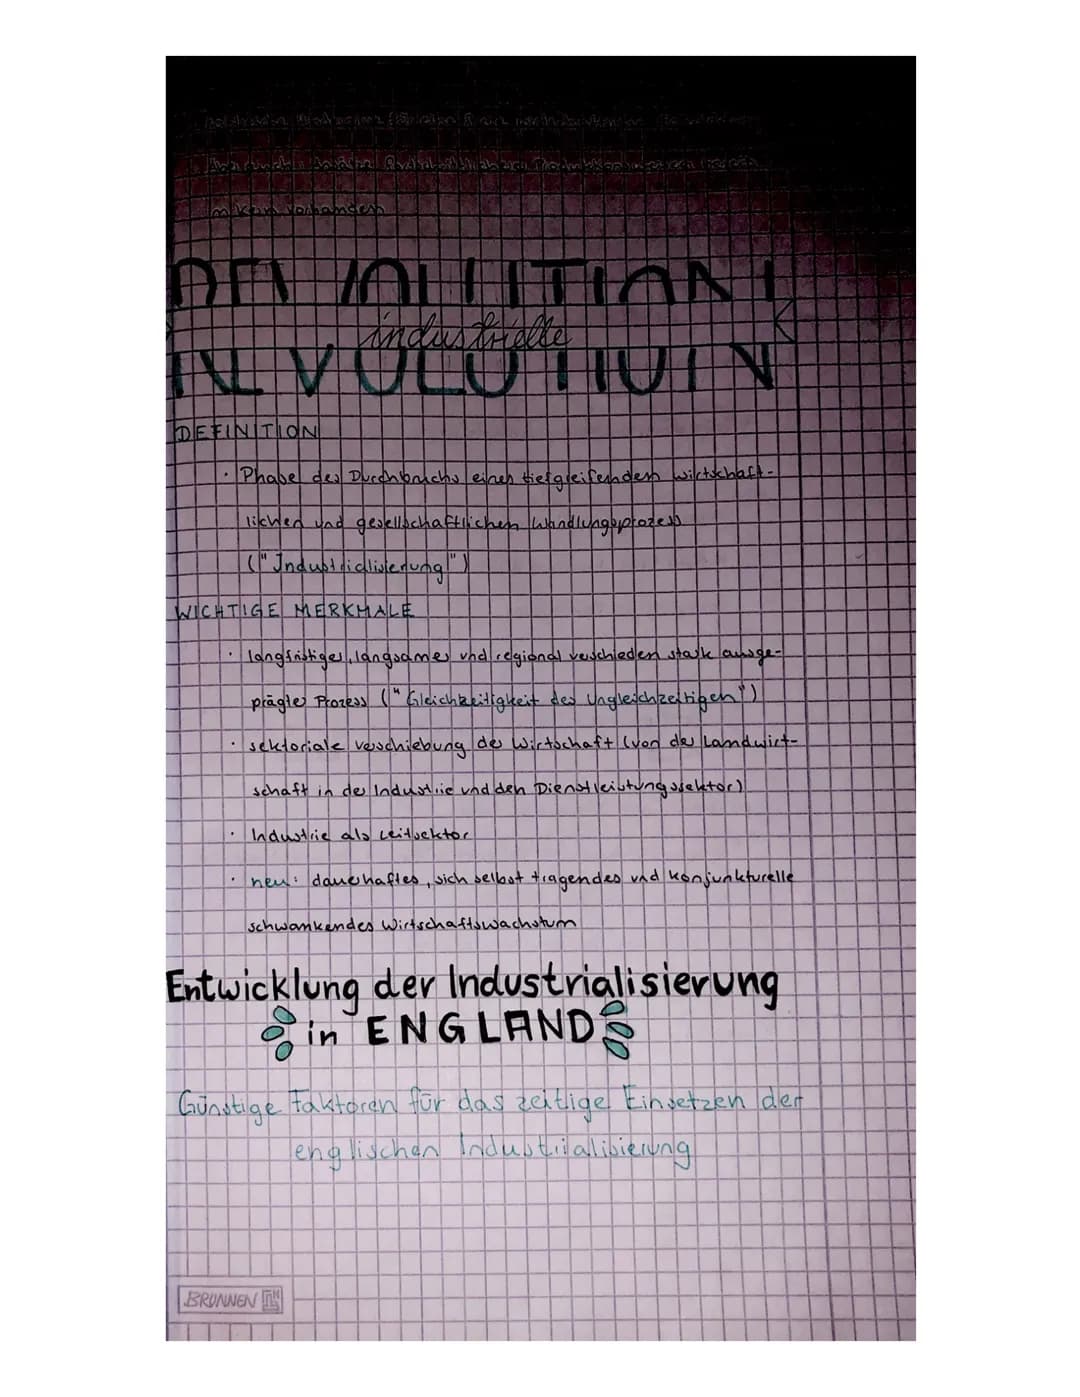 im Kern vorhanden
REVOLUTION
industrielle
DEFINITION
· Phase des Durchbruchs eines tiefgreifenden wirtschaft-
lichen und gesellschaftlichen Wandlungsprozess
("Industrialisierung")
WICHTIGE MERKMALE
· langfristiger, langsamer und regional verschieden stark ausge-
prägter Prozess ("Gleichzeitigkeit des Ungleichzeitigen")
· sektoriale verschiebung der Wirtschaft (von der Landwirt-
schaft in der Industrie und den Dienstleistungssektor)
· Industrie als Leitsektor
· neu: dauerhaftes, sich selbst tragendes und konjunkturelle
schwankendes Wirtschaftswachstum
Entwicklung der Industrialisierung
in ENGLAND
Günstige Faktoren für das zeitige Einsetzen der
englischen Industrialisierung
BRUNNEN